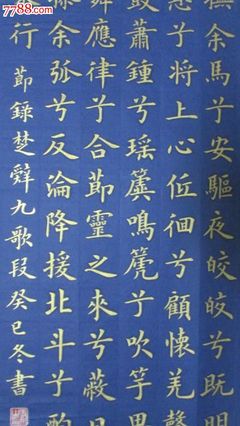 7788.com
撫余馬兮安驅夜皎皎兮既明
息兮將上心低徊兮顧懷羌聲
鼓簫鍾兮瑤簴鳴篪兮吹竽思
舞應律兮合節靈之來兮蔽
操余弧兮反淪降援北斗兮酌
行 節錄楚辭九歌段癸巳冬書